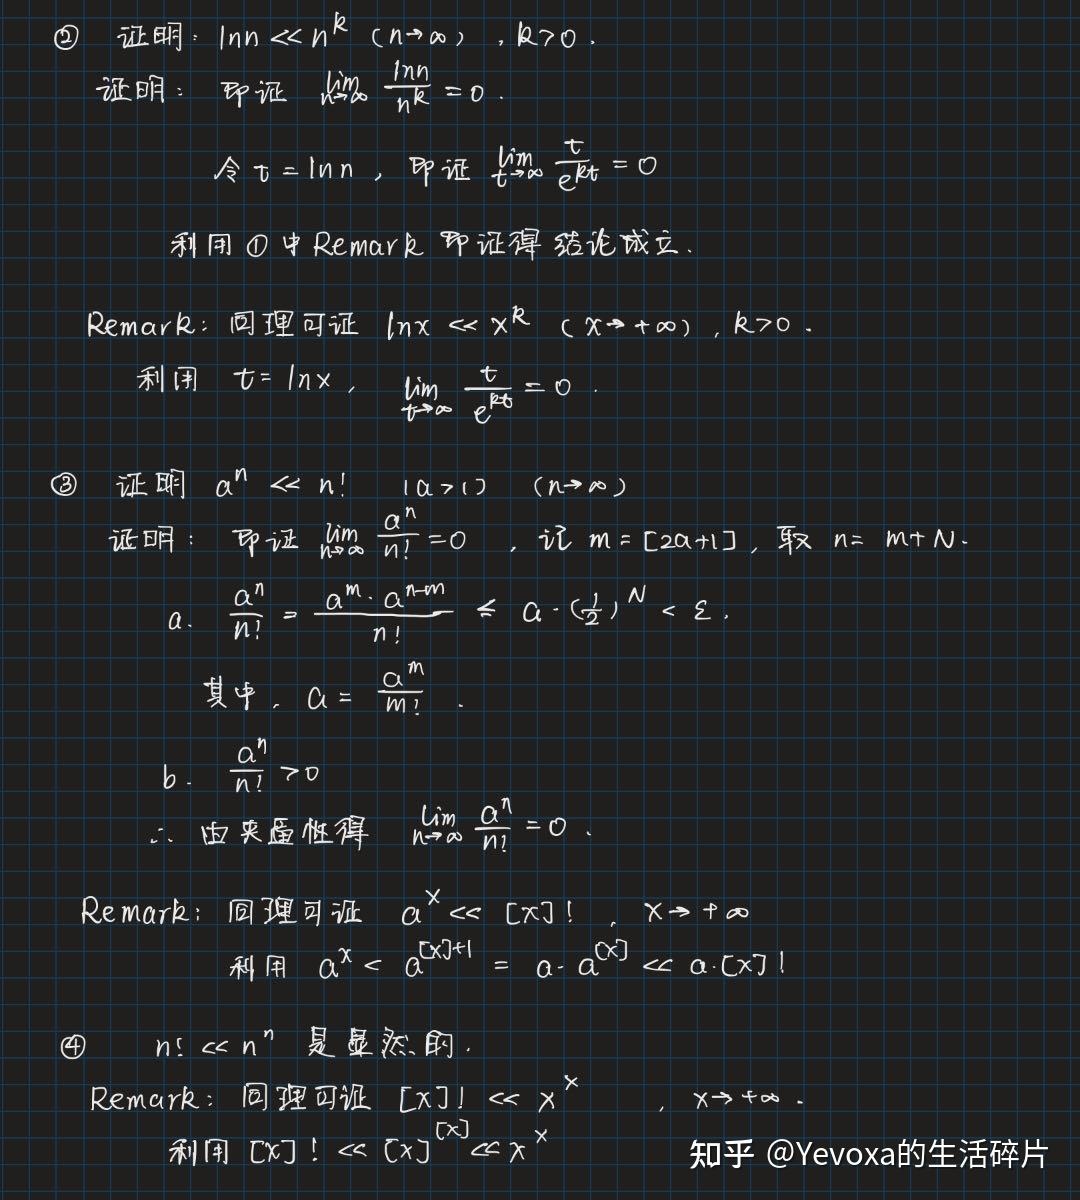 ② 证明: lnn << n^k (n→∞), k>0.
证明: 即证 lim_{n→∞} lnn/n^k = 0.
令 t = lnn, 即证 lim_{t→∞} t/e^{kt} = 0
利用①中Remark即证得结论成立.
Remark: 同理可证 lnx << x^k (x→+∞), k>0.
利用 t = lnx, lim_{t→∞} t/e^{kt} = 0.
③ 证明 a^n << n! (a>1) (n→∞)
证明: 即证 lim_{n→∞} a^n/n! = 0, 记 m = [2a+1], 取 n = m+N.
a. a^n/n! = a^m·a^{n-m}/n! ≤ a·(1/2)^N < ε.
其中, a = a^m/m!.
b. a^n/n! > 0
∴ 由夹逼性得 lim_{n→∞} a^n/n! = 0.
Remark: 同理可证 a^x << [x]!, x→+∞
利用 a^x < a^{[x]+1} = a·a^{[x]} << a·[x]!
④ n! << n^n 是显然的.
Remark: 同理可证 [x]! << x^x, x→+∞.
利用 [x]! << [x]^{[x]} << x^x
知乎 @Yevoxa的生活碎片